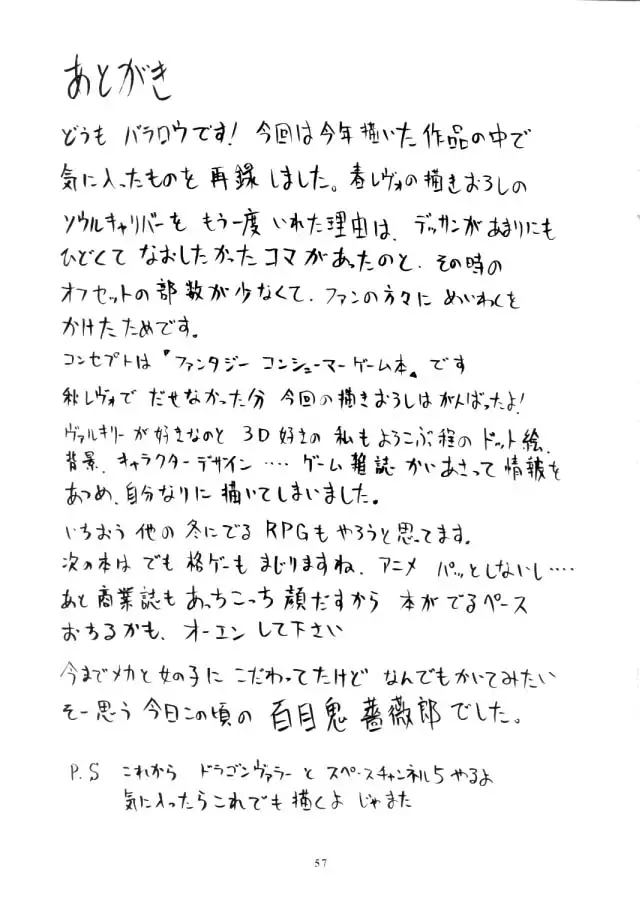 あとがき
どうも バラロウです! 今回は今年描いた作品の中で
気に入ったものを 再録しました。春レヴォの描きおろしの
ソウルキャリバーを もう一度 いれた理由は、デッサンがあまりにも
ひどくて なおしたかった コマがあったのと、その時の
オフセットの部数が少なくて、ファンの方々に めいわくを
かけたためです。
コンセプトは『ファンタジー コンシューマーゲーム本』です
秋レヴォで だせなかった分 今回の描きおろしは がんばったよ!
ヴァルキリーが好きなのと 3D好きの 私もよろこぶ程の ドット絵、
背景、キャラクターデザイン…‥ ゲーム雑誌 かいあさって 情報を
あつめ、自分なりに 描いてしまいました。
いちおう 他の 冬にでる RPGも やろうと思ってます。
次の本は でも 格ゲーも まじりますね、アニメ パッとしないし‥‥
あと 商業誌も あっちこっち 顔だすから 本がでるペース
おちるかも、オーエンして下さい
今までメカと女の子に こだわってたけど なんでもかいてみたい
そー思う 今日この頃の 百目鬼 薔薇郎でした。
P.S これから ドラゴンヴァラーと スペースチャンネル5 やるよ
気に入ったらこれでも描くよ じゃまた
57